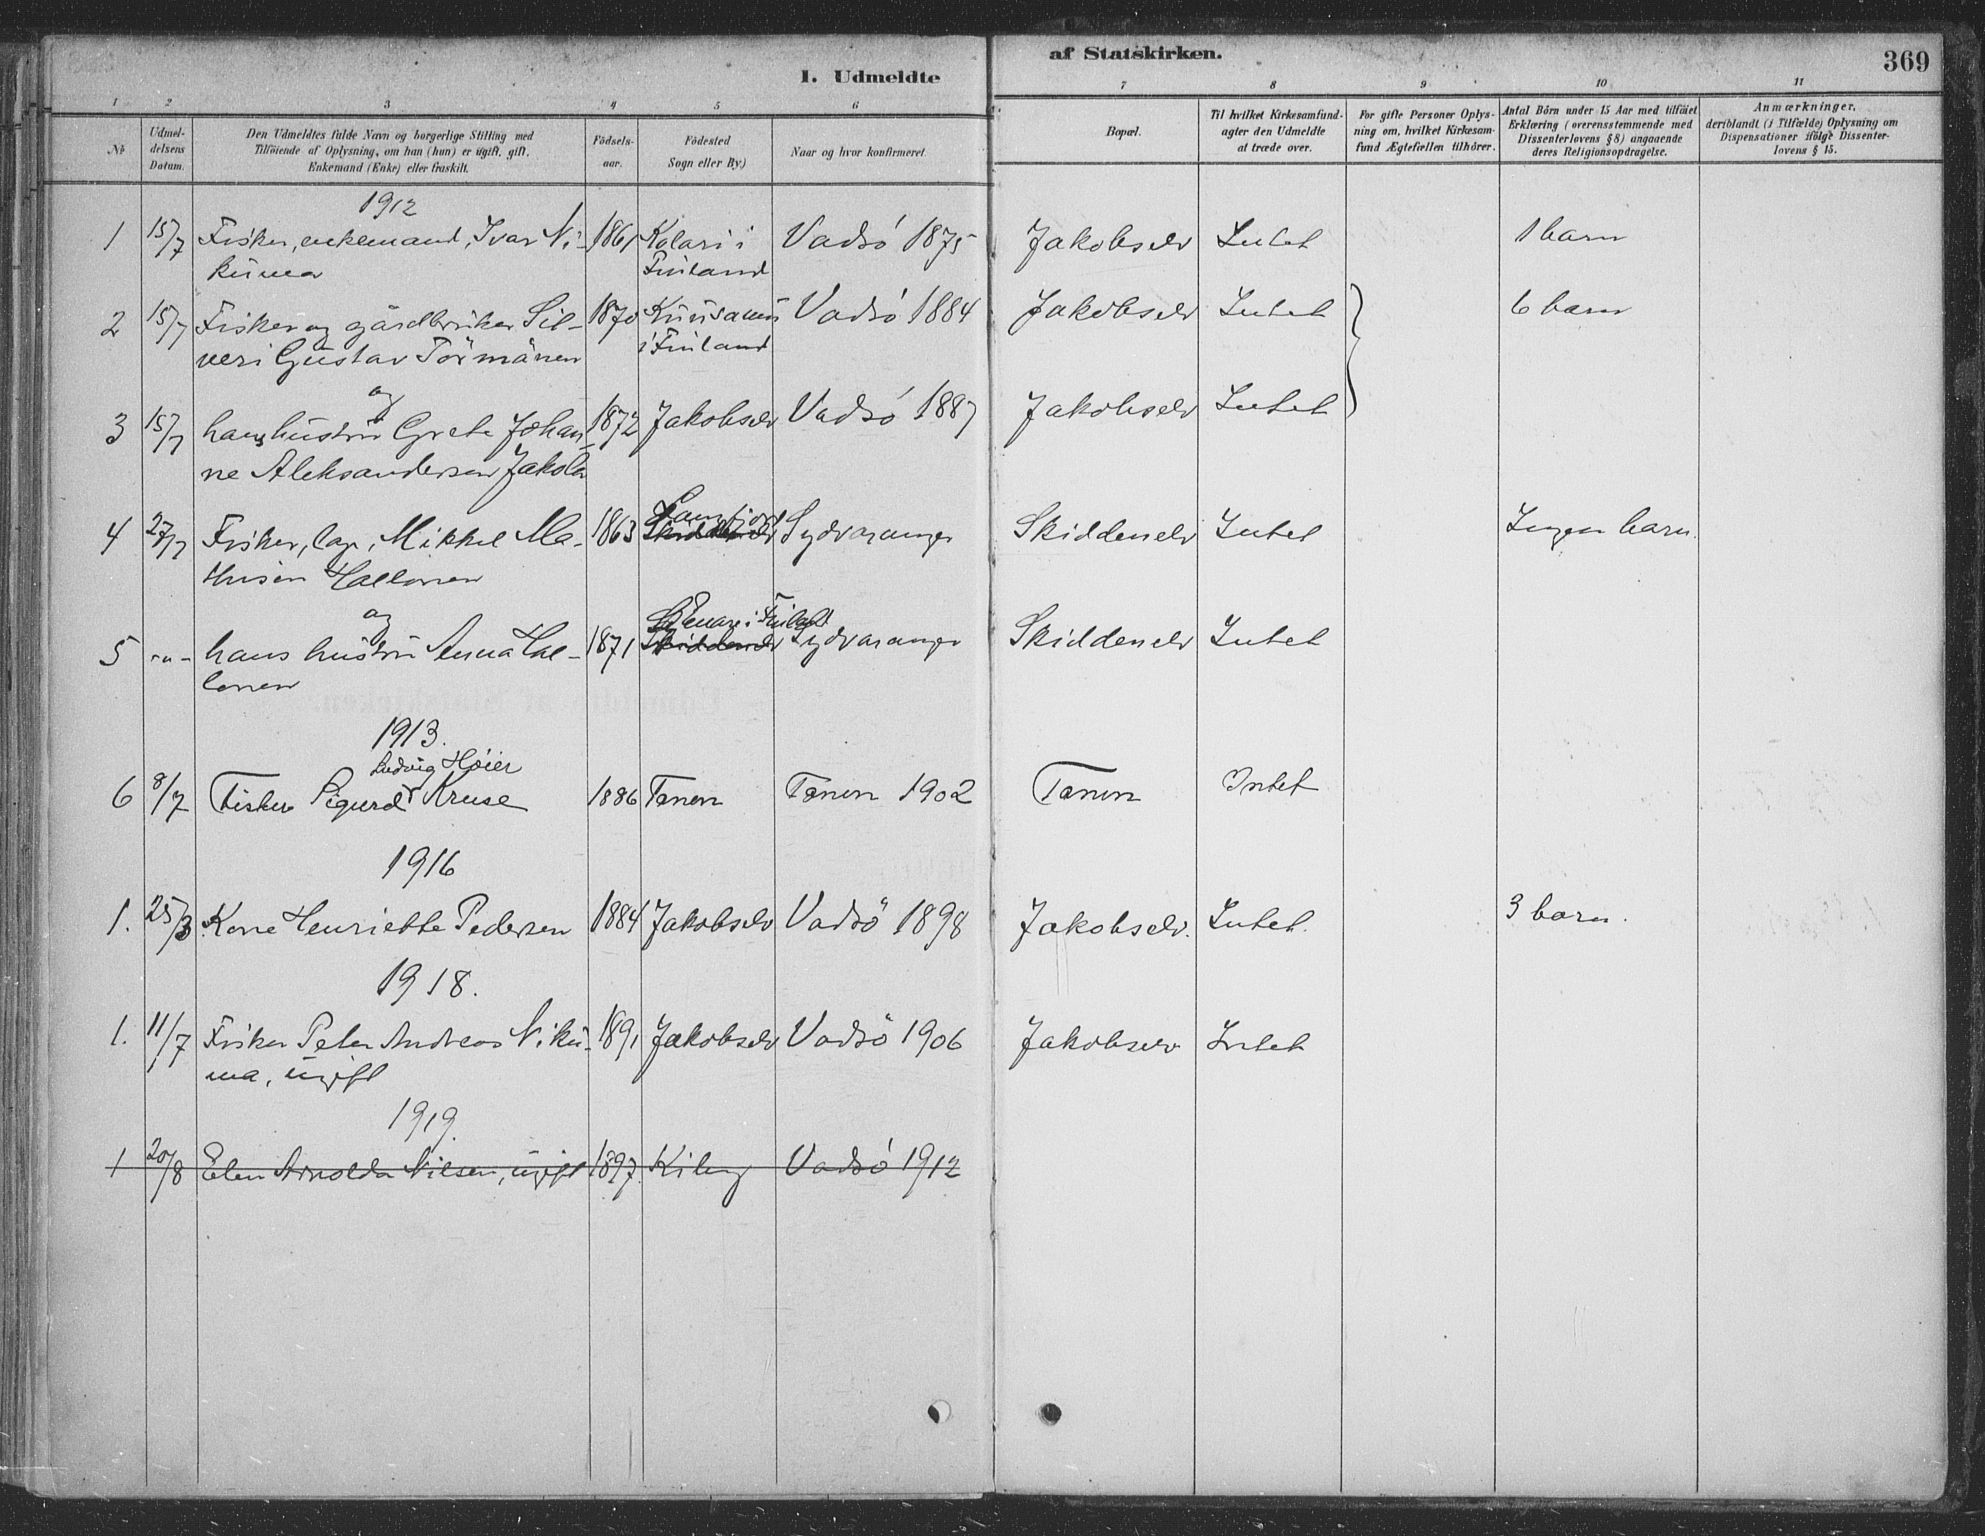 I. Udmeldte
af Statskirken.
369
1 2 3 4 5 6 7 8 9 10 11
No
Udmel-
delsens
Datum.
Den Udmeldtes fulde Navn og borgerlige Stilling med
Tilføiende af Oplysning, om han (hun) er ugift, gift,
Enkemand (Enke) eller fraskilt.
Födsels-
aar.
Födested
Sogn eller By.)
Naar og hvor konfirmeret
Bopæl.
Til hvilket Kirkesamfund-
agter den Udmeldte
at træde over.
For gifte Personer Oplys-
ning om, hvilket Kirkesam-
fund Ægtefællen tilhörer.
Antal Börn under 15 Aar med tilföiet
Erklæring (overensstemmende med
Dissenterlovens § 8) angaaende
deres Religionsopdragelse.
Anmærkninger,
deriblandt (i Tilfælde) Oplysning om
Dispensationer ifölge Dissenter-
lovens § 15.
1912
1 15/7 Fisker, enkemand, Ivar Ni- 1861 Kolari i Vadsö 1875 Jakobselv Intet 1 barn
kuma Finland
2 15/7 Fisker og gårdbruker Sil- 1870 Kuusamu Vadsö 1884 Jakobselv Intet 6 barn
veri Gustav Törmänen i Finland
og
3 15/7 hans hustru Grete Johan- 1872 Jakobselv Vadsö 1887 Jakobselv Intet
ne Aleksandersen Jakola
4 27/7 Fisker, Mikkel Ma- 1863 Skiddenelv Sydvaranger Skiddenelv Intet Ingen barn.
thisen Hallonen
og Enare i Finland
5 -"- hans hustru Anna Hal- 1871 Skiddenelv Sydvaranger Skiddenelv Intet
lonen
1913.
Ludvig Høier
6 8/7 Fisker Sigurd Kruse 1886 Tanen Tanen 1902 Tanen Intet
1916
1. 25/3 Kone Henriette Pedersen 1884 Jakobselv Vadsö 1898 Jakobselv. Intet. 3 barn.
1918.
1. 11/7 Fisker Peter Andreas Niku- 1891 Jakobselv Vadsö 1906 Jakobselv Intet
ma, ugift
1919.
1 20/8 Elen Arnolda Nilsen, ugift 1897. Kiberg Vadsö 1912